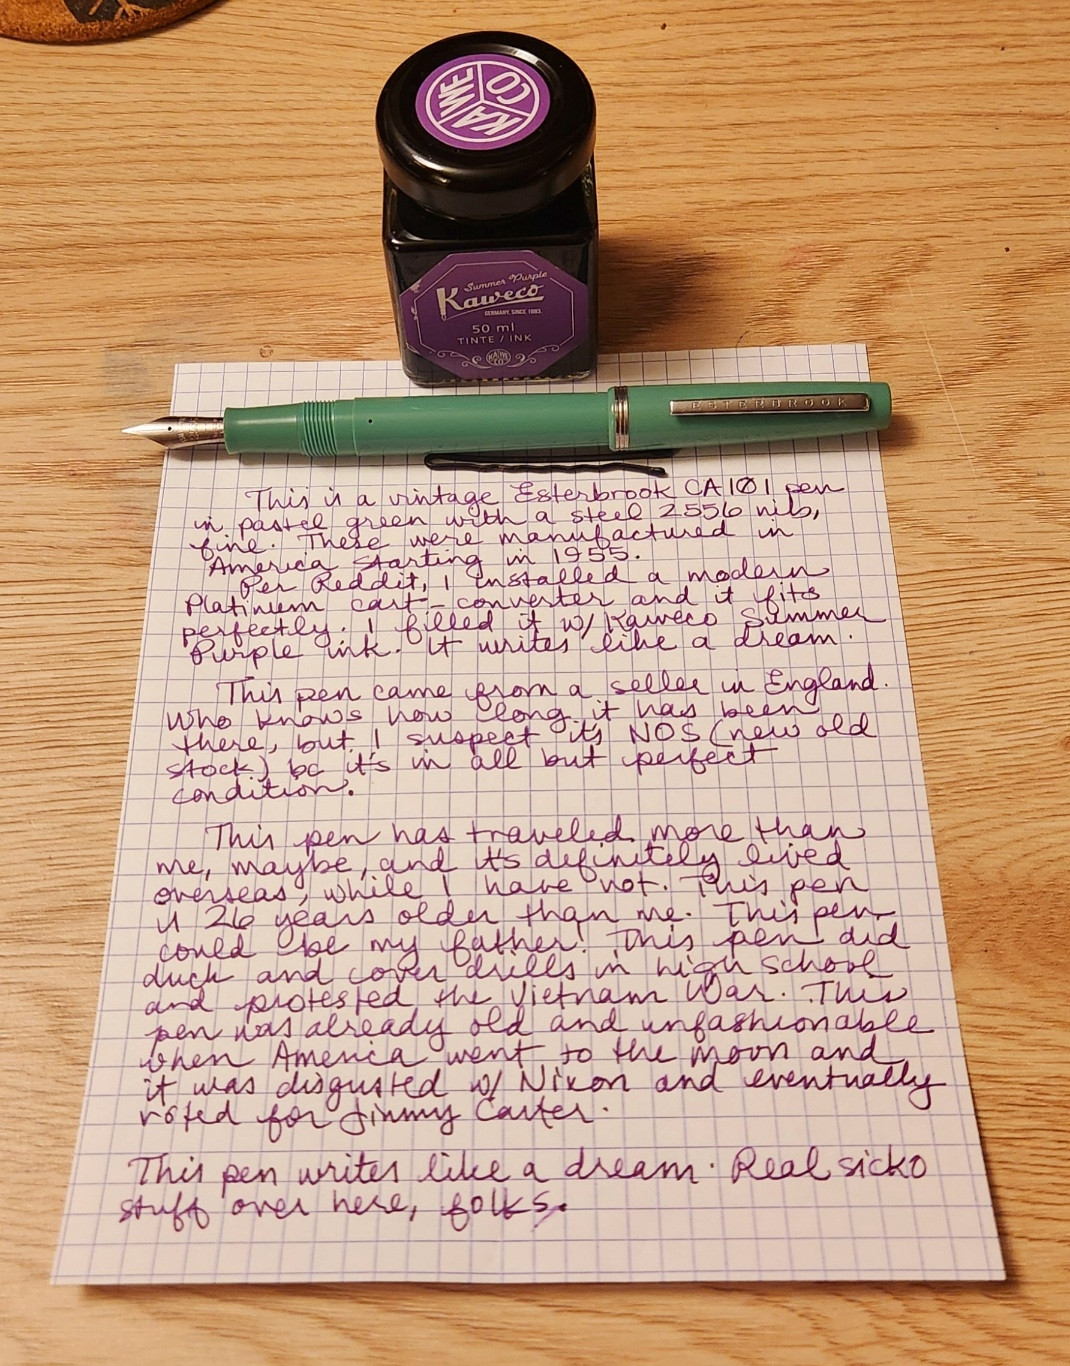 KAWE
CO
Summer Purple
Kaweco
GERMANY, SINCE 1883.
50 ml
TINTE / INK
KAWE
CO
ESTERBROOK
This is a vintage Esterbrook CA101 pen
in pastel green with a steel 2556 nib,
fine. These were manufactured in
America starting in 1955.
Per Reddit, I installed a modern
Platinum cart-converter and it fits
perfectly. I filled it w/ Kaweco Summer
Purple ink. It writes like a dream.
This pen came from a seller in England.
Who knows how long it has been
there, but I suspect it's NOS (new old
stock) bc it's in all but perfect
condition.
This pen has traveled more than
me, maybe, and it's definitely lived
overseas, while I have not. This pen
is 26 years older than me. This pen
could be my father! This pen did
duck and cover drills in high school
and protested the Vietnam War. This
pen was already old and unfashionable
when America went to the moon and
it was disgusted w/ Nixon and eventually
voted for Jimmy Carter.
This pen writes like a dream. Real sicko
stuff over here, folks.